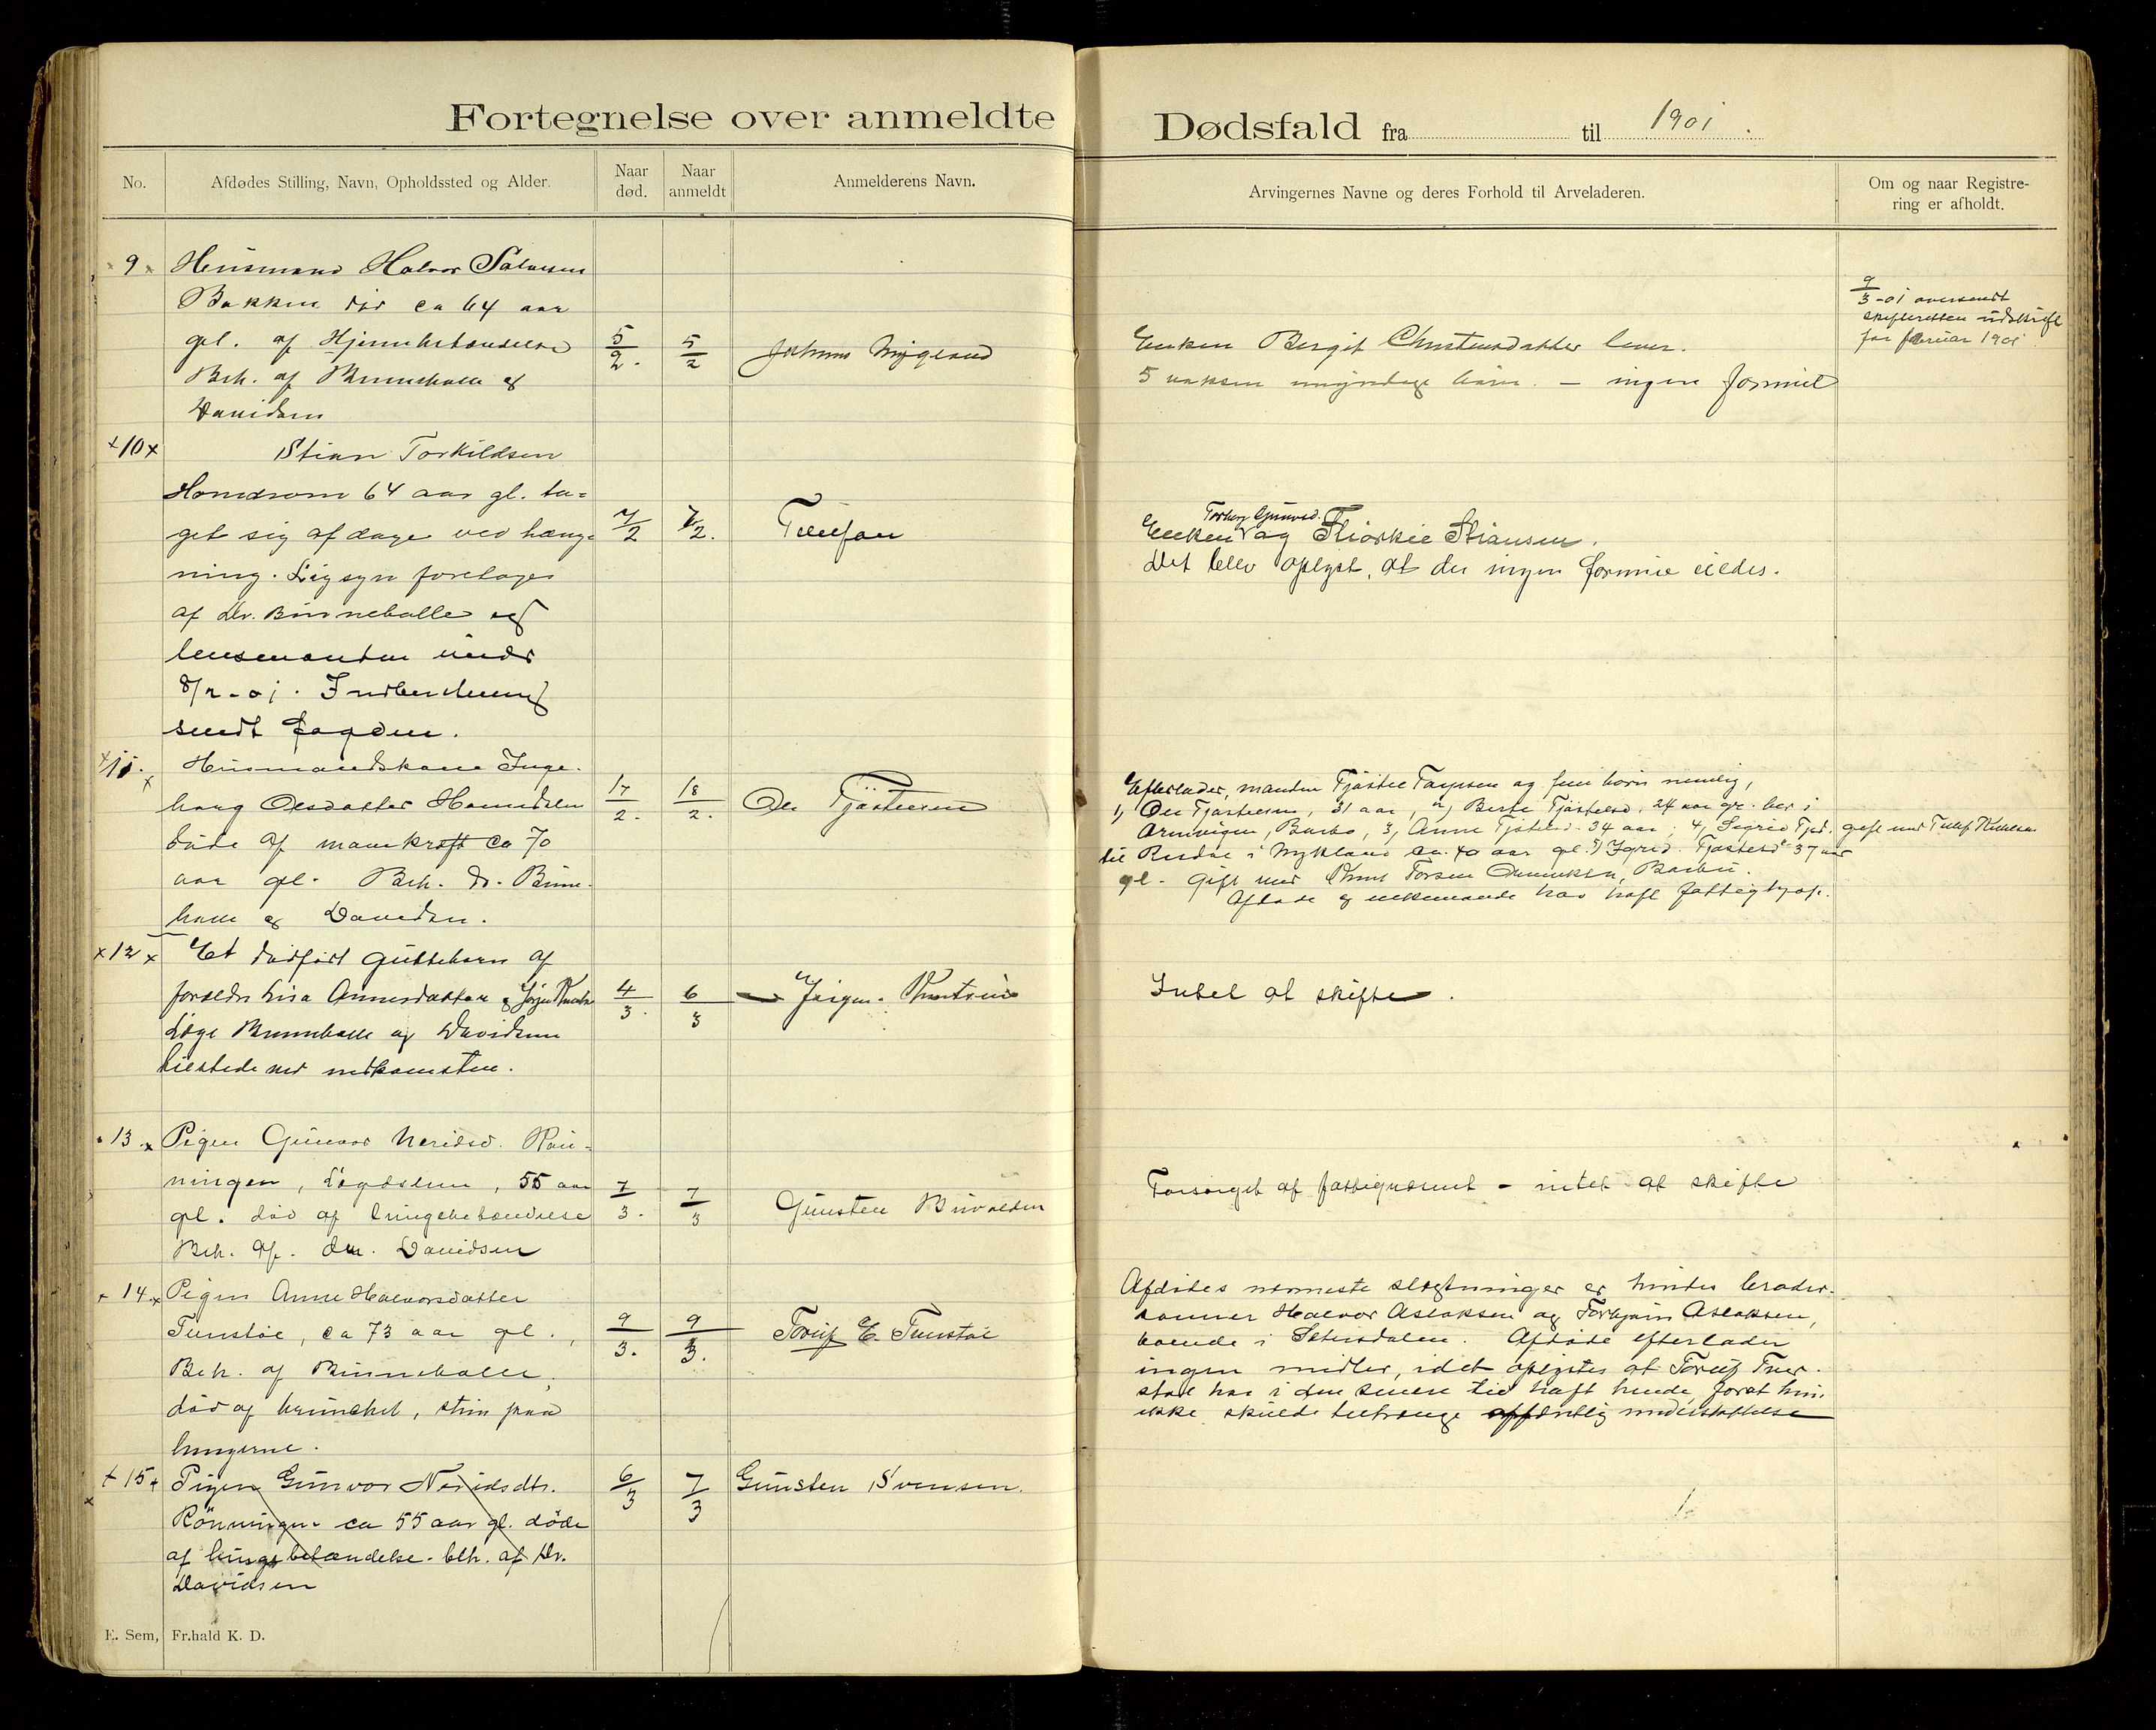 Fortegnelse over anmeldte Dødsfald fra til 1901.
No.
Afdødes Stilling, Navn, Opholdssted og Alder.
Naar død.
Naar anmeldt
Anmelderens Navn.
Arvingernes Navne og deres Forhold til Arveladeren.
Om og naar Registrering er afholdt.
9
Husmand Halvor Salvesen
Bakken død ca 64 aar
gl. af Hjernebetændelse
Beh. af Binneballe og
Davidsen
5/2.
5/2
Enken Bergit Christensdatter lever.
5 voksen myndige børn. – ingen formue
9/3-01 oversendt
skifteretten udskrift
for februar 1901
10
Stian Torkildsen
Homdrom 64 aar gl. ta=
get sig af dage ved hæng=
ning. Ligsyn foretages
af Dr. Binneballe og
lensmanden under
8/2-01. Indberetning
sendt fogden.
7/2
7/2.
Telefon
Torborg Gunvsd.
Enken og Stiansen.
Det blev oplyst, at der ingen formue eiedes.
11.
Husmandskone Inge-
borg Olsdatter
døde af mavekræft ca 70
aar gl. Beh. Dr. Binne-
balle og Davidsen.
17/2.
18/2.
Ole Tjøstelsen
Efterlader, manden Tjøstel og fem børn nemlig,
1, Ole Tjøstelsen, 31 aar, 2, Berte Tjøstelsd. 24 aar gl. her i
Arnevigen, Barbo, 3, Anne Tjøstelsd. 34 aar, 4, Sigrid Tjøst. gift med
til i Mykland ca. 40 aar gl. 5, Tjøstelsd 37 aar
gl. gift med Knut Barbu.
Afdøde og enkemande har haft fattigbyas.
12
Et dødfødt guttebarn af
forældre Lisa Annesdatter & Jørgen Knuts
Læge Binneballe og Davidsen
tilstede ved nedkomsten.
4/3.
6/3
Jørgen Knutsen
Intet at skifte.
13
Pigen Gunvor Neridsd. Røn-
ningen, Lægdslem, 55 aar
gl. død af lungebetændelse
Beh. af. dr. Davidsen
7/3.
7/3
Gunsten
Forsørget af fattigvæsenet – intet at skifte
14
Pigen Anne Halvorsdatter
Tunstøl, ca 73 aar gl.,
Beh. af Binneballe,
død af brunchit, slim paa
lungerne.
9/3.
9/3.
E. Tunstøl
Afdødes nærmeste slægtninger er hendes broder-
sønner Halvor Aslaksen og Torbjørn Aslaksen,
boende i Sætersdalen. Afdøde efterlader
ingen midler, idet oplystes at
støl har i den senere tid haft hende, forat hun
ikke skulde tiltrænge offentlig understøttelse
15
Pigen Gunvor Neridsdtr.
Rønningen ca 55 aar gl. døde
af lungebetændelse. beh. af Dr.
Davidsen
6/3
7/3
Gunsten Svensen.
E. Sem, Fr.hald K. D.